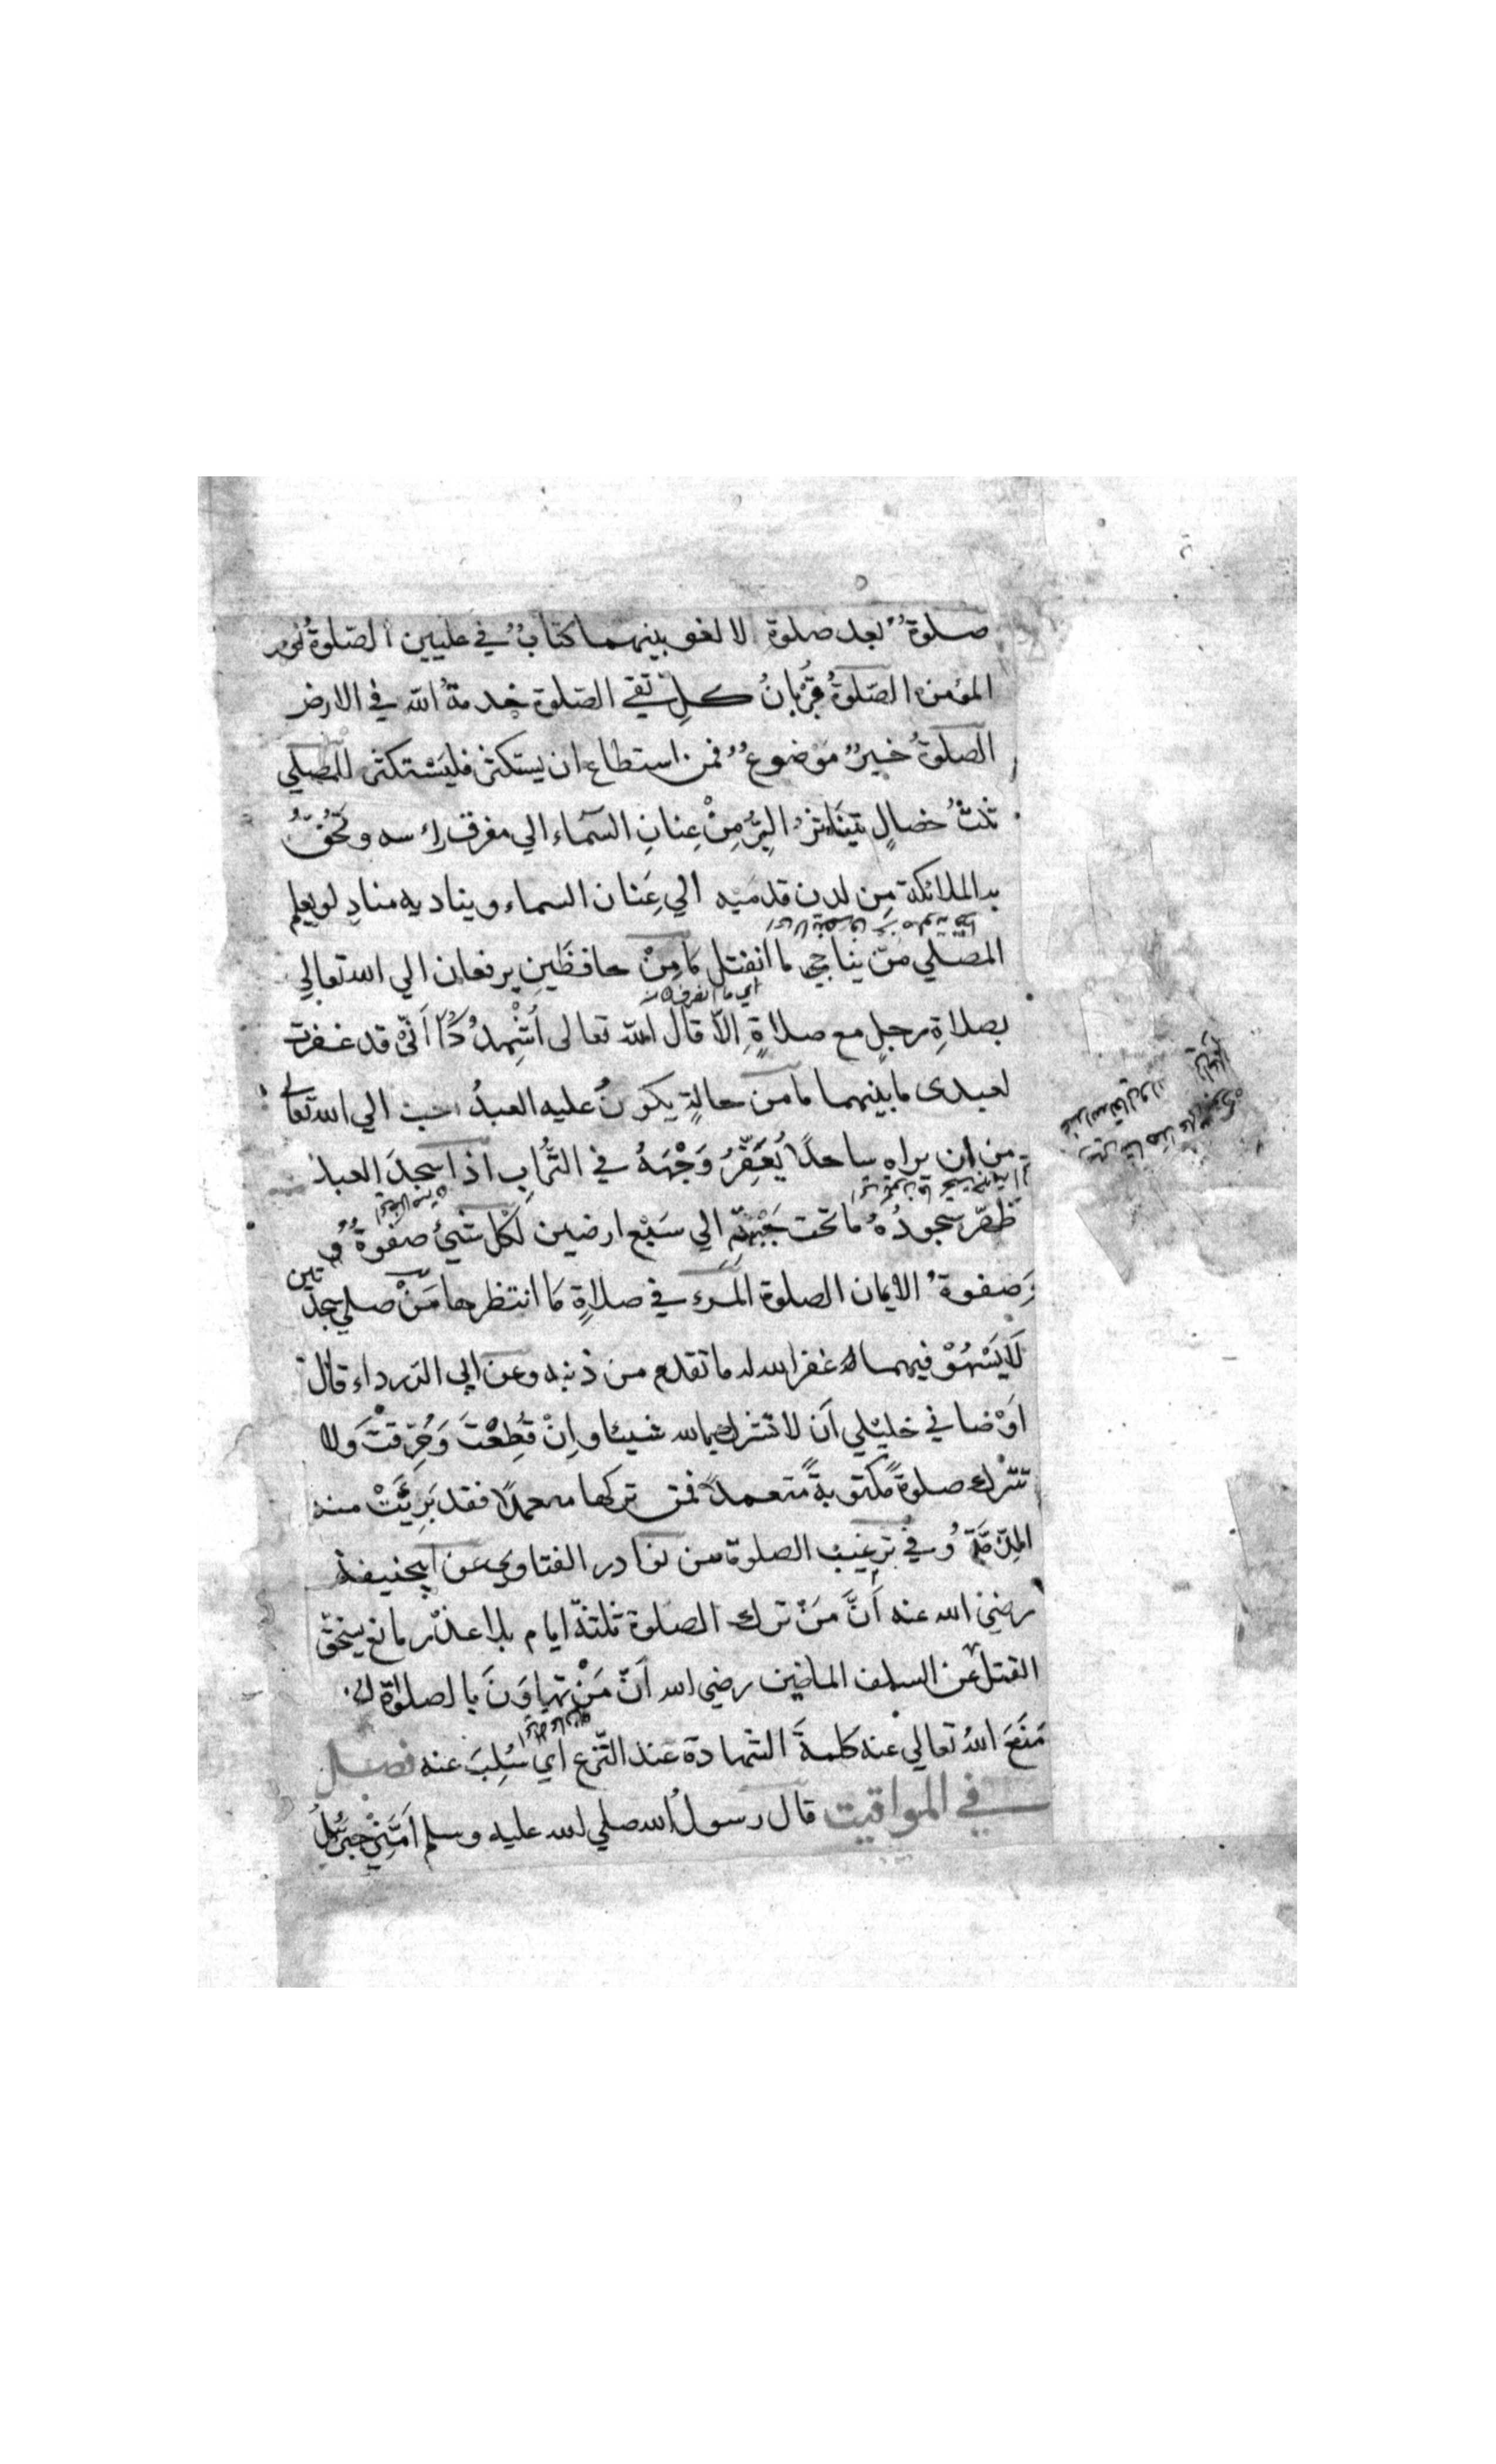 صلوةٌ بعد صلوة لا لغو بينهما كتابٌ في عليين الصّلوةُ نور
المؤمن الصّلوةُ قُرْبانُ كلِّ تقي الصّلوة خدمةُ الله في الارض
الصلوةُ خيرٌ مَوْضوعٌ فمن استطاع ان يستكثر فليَسْتكثر للمصلي
ثلثُ خصالٍ يَتناثرُ البِرُّ مِنْ عِنانِ السّماء الي مفرق راسه وتَحُفُّ
به الملائكة مِن لدن قدمَيْه الي عَنان السماء ويناديه منادٍ لو يعلم
المصلي مَنْ يناجي ما انفتل مَا مِنْ حافظَينِ يرفعان الي الله تعالي
اي ما انصرف
بصلاةِ رجلٍ مع صلاةٍ اِلّا قال الله تعالى اُشْهِدُكُمَا اَنّيْ قد غفرت
لعبدى ما بينهما ما من حالةٍ يكونُ عليه العبدُ احب الي الله تعالي
من ان يراه ساجدًا يُعَفِّرُ وَجْهَهُ في التُّرابِ اذا سجدَ العبد
طهّر سجودُهُ ما تحت جَبْهَتِهِ الي سَبْع ارضين لكل شيئ صَفوةٌ
وَصفوةُ الايمان الصلوة المَرء في صلاةٍ مَا انتظرها مَنْ صلي سجدتين
لَا يَسْهُوْ فيهما غفر الله له ما تقدم من ذنبه وعن ابي الدرداء قال
اَوْصاني خليْلي اَن لا تشرك بالله شيئا واِنْ قُطِعْتَ وَحُرِّقتَ ولا
تترك صلوةً مكتوبةً متعمدًا فمن تركها متعمدًا فقد بَرِيَتْ منه
الذِّمَّةُ وفي ترغيب الصلوة من نوادر الفتاوي عن ابيحنيفة
رضي الله عنه اَنَّ مَنْ ترك الصلوة ثلثة ايام بلا عذر مانع يستحق
القتل عن السلف الماضين رضي الله اَنّ مَنْ تهاوَنَ بالصلوة
مَنَعَ اللهُ تعالي عنه كلمةَ الشهادة عند النّزع اي سُلِبَ عنه فصل
في المواقيت قال رسولُ الله صلي الله عليه وسلم اَمَّنِيْ جبرئيلُ